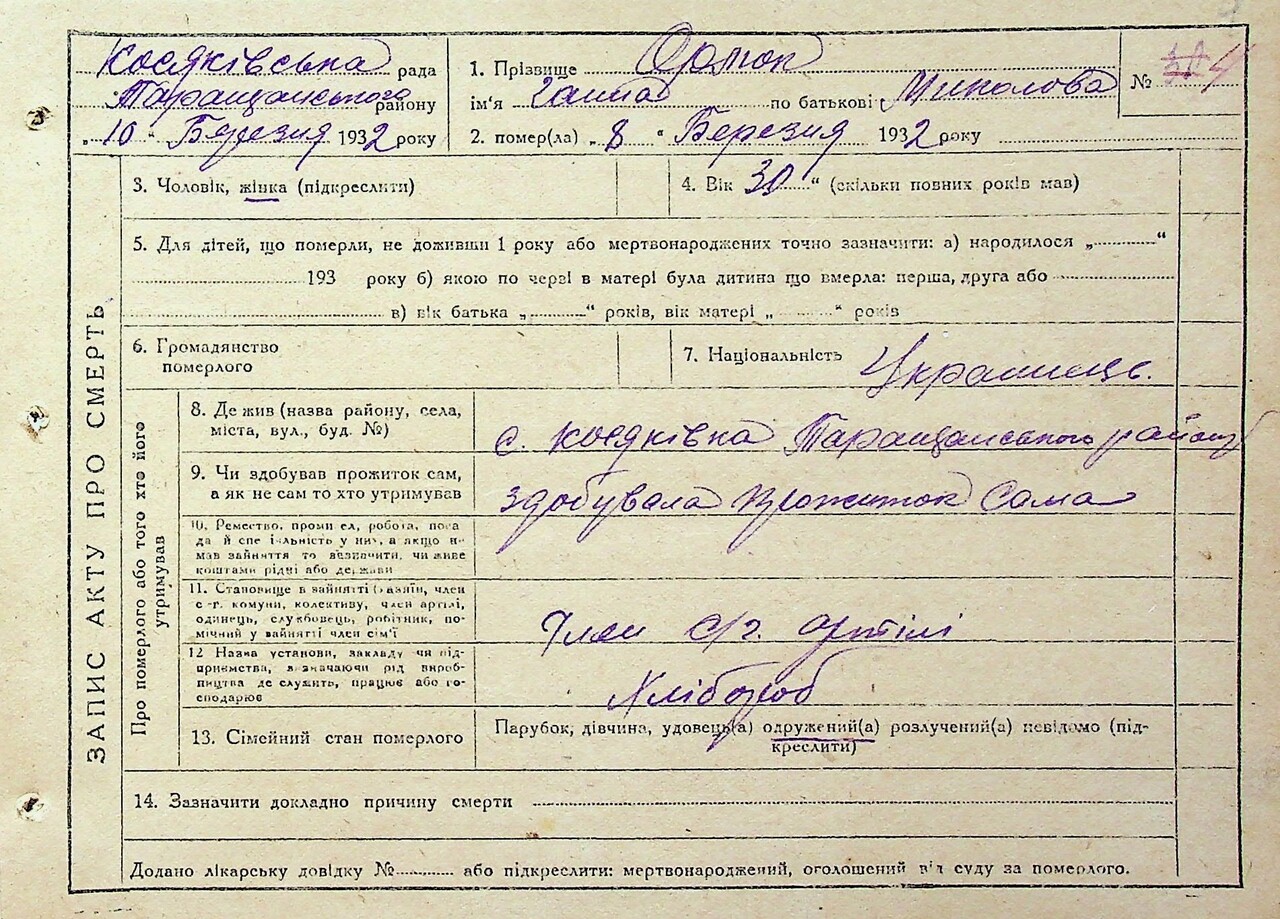 Косяківська рада
Таращанського району
„ 10 “ Березня 1932 року
1. Прізвище
ім'я Ганна по батькові Миколова
2. помер(ла) „ 8 “ Березня 1932 року
№ 4
ЗАПИС АКТУ ПРО СМЕРТЬ
3. Чоловік, жінка (підкреслити)
4. Вік 30 “ (скільки повних років мав)
5. Для дітей, що померли, не доживши 1 року або мертвонароджених точно зазначити: а) народилося „ “
193 року б) якою по черзі в матері була дитина що вмерла: перша, друга або
в) вік батька „ “ років, вік матері „ “ років
6. Громадянство
померлого
7. Національність Українець.
Про померлого або того хто його
утримував
8. Де жив (назва району, села,
міста, вул., буд. №)
с. Косяківка Таращанського району
9. Чи здобував прожиток сам,
а як не сам то хто утримував
здобувала прожиток сама
10. Ремество, проми ел, робота, поса
да й спе іяльність у них, а якщо н-
мав зайняття то визначити, чи живе
коштами рідні або держави
11. Становище в зайнятті (хазяїн, член
с-г. комуни, колективу, член артілі,
одинець, службовець, робітник, по-
мічний у зайнятті член сім'ї
Член с/г. артілі
12 Назва установи, закладу чи під-
приємства, в значаючи рід вироб-
ництва де служить, працює або го-
сподарює
Хлібороб
13. Сімейний стан померлого
Парубок, дівчина, удовець(а) одружений(а) розлучений(а) невідомо (під-
креслити)
14. Зазначити докладно причину смерти
Додано лікарську довідку № або підкреслити: мертвонароджений, оголошений від суду за померлого.